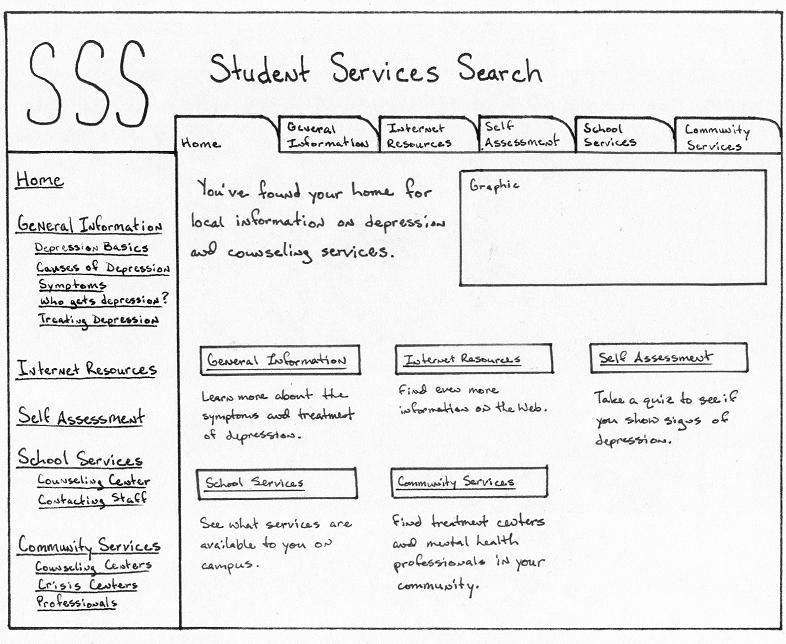 SSS
Student Services Search
Home
General
Information
Internet
Resources
Self
Assessment
School
Services
Community
Services
Home
General Information
Depression Basics
Causes of Depression
Symptoms
Who gets depression?
Treating Depression
Internet Resources
Self Assessment
School Services
Counseling Center
Contacting Staff
Community Services
Counseling Centers
Crisis Centers
Professionals
You've found your home for
local information on depression
and counseling services.
Graphic
General Information
Learn more about the
symptoms and treatment
of depression.
Internet Resources
Find even more
information on the Web.
Self Assessment
Take a quiz to see if
you show signs of
depression.
School Services
See what services are
available to you on
campus.
Community Services
Find treatment centers
and mental health
professionals in your
community.